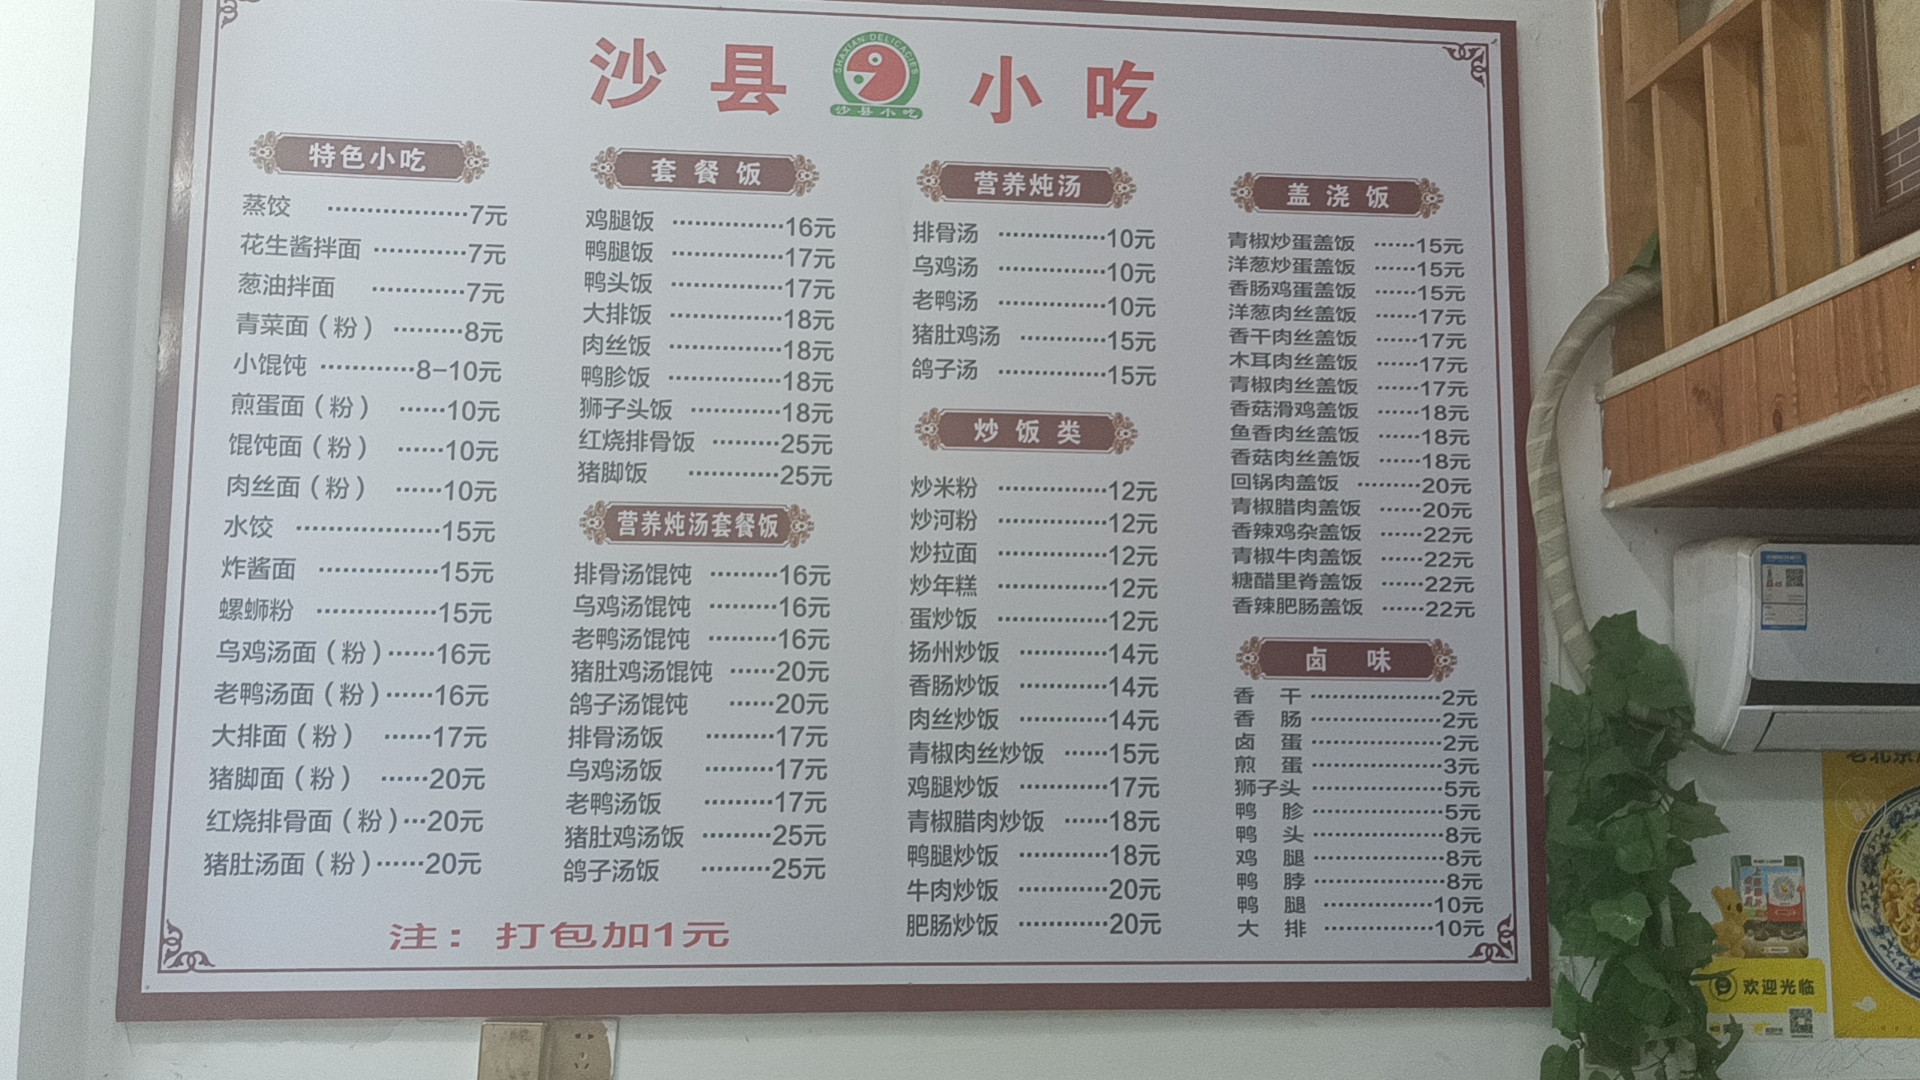 沙县小吃
SHAXIAN DELICACIES
沙县小吃
特色小吃
蒸饺 ………………7元
花生酱拌面 …………7元
葱油拌面 …………7元
青菜面（粉） ………8元
小馄饨 …………8-10元
煎蛋面（粉） ……10元
馄饨面（粉） ……10元
肉丝面（粉） ……10元
水饺 ………………15元
炸酱面 ……………15元
螺蛳粉 ……………15元
乌鸡汤面（粉）……16元
老鸭汤面（粉）……16元
大排面（粉） ……17元
猪脚面（粉） ……20元
红烧排骨面（粉）…20元
猪肚汤面（粉）……20元
套餐饭
鸡腿饭 ……………16元
鸭腿饭 ……………17元
鸭头饭 ……………17元
大排饭 ……………18元
肉丝饭 ……………18元
鸭胗饭 ……………18元
狮子头饭 …………18元
红烧排骨饭 ………25元
猪脚饭 …………25元
营养炖汤套餐饭
排骨汤馄饨 ………16元
乌鸡汤馄饨 ………16元
老鸭汤馄饨 ………16元
猪肚鸡汤馄饨 ……20元
鸽子汤馄饨 ……20元
排骨汤饭 ………17元
乌鸡汤饭 ………17元
老鸭汤饭 ………17元
猪肚鸡汤饭 ………25元
鸽子汤饭 ………25元
营养炖汤
排骨汤 ……………10元
乌鸡汤 ……………10元
老鸭汤 ……………10元
猪肚鸡汤 …………15元
鸽子汤 ……………15元
炒饭类
炒米粉 ……………12元
炒河粉 ……………12元
炒拉面 ……………12元
炒年糕 ……………12元
蛋炒饭 ……………12元
扬州炒饭 …………14元
香肠炒饭 …………14元
肉丝炒饭 …………14元
青椒肉丝炒饭 ……15元
鸡腿炒饭 …………17元
青椒腊肉炒饭 ……18元
鸭腿炒饭 …………18元
牛肉炒饭 …………20元
肥肠炒饭 …………20元
盖浇饭
青椒炒蛋盖饭 ……15元
洋葱炒蛋盖饭 ……15元
香肠鸡蛋盖饭 ……15元
洋葱肉丝盖饭 ……17元
香干肉丝盖饭 ……17元
木耳肉丝盖饭 ……17元
青椒肉丝盖饭 ……17元
香菇滑鸡盖饭 ……18元
鱼香肉丝盖饭 ……18元
香菇肉丝盖饭 ……18元
回锅肉盖饭 ………20元
青椒腊肉盖饭 ……20元
香辣鸡杂盖饭 ……22元
青椒牛肉盖饭 ……22元
糖醋里脊盖饭 ……22元
香辣肥肠盖饭 ……22元
卤味
香干 ………………2元
香肠 ………………2元
卤蛋 ………………2元
煎蛋 ………………3元
狮子头 ………………5元
鸭胗 ………………5元
鸭头 ………………8元
鸡腿 ………………8元
鸭脖 ………………8元
鸭腿 ……………10元
大排 ……………10元
注：打包加1元
欢迎光临